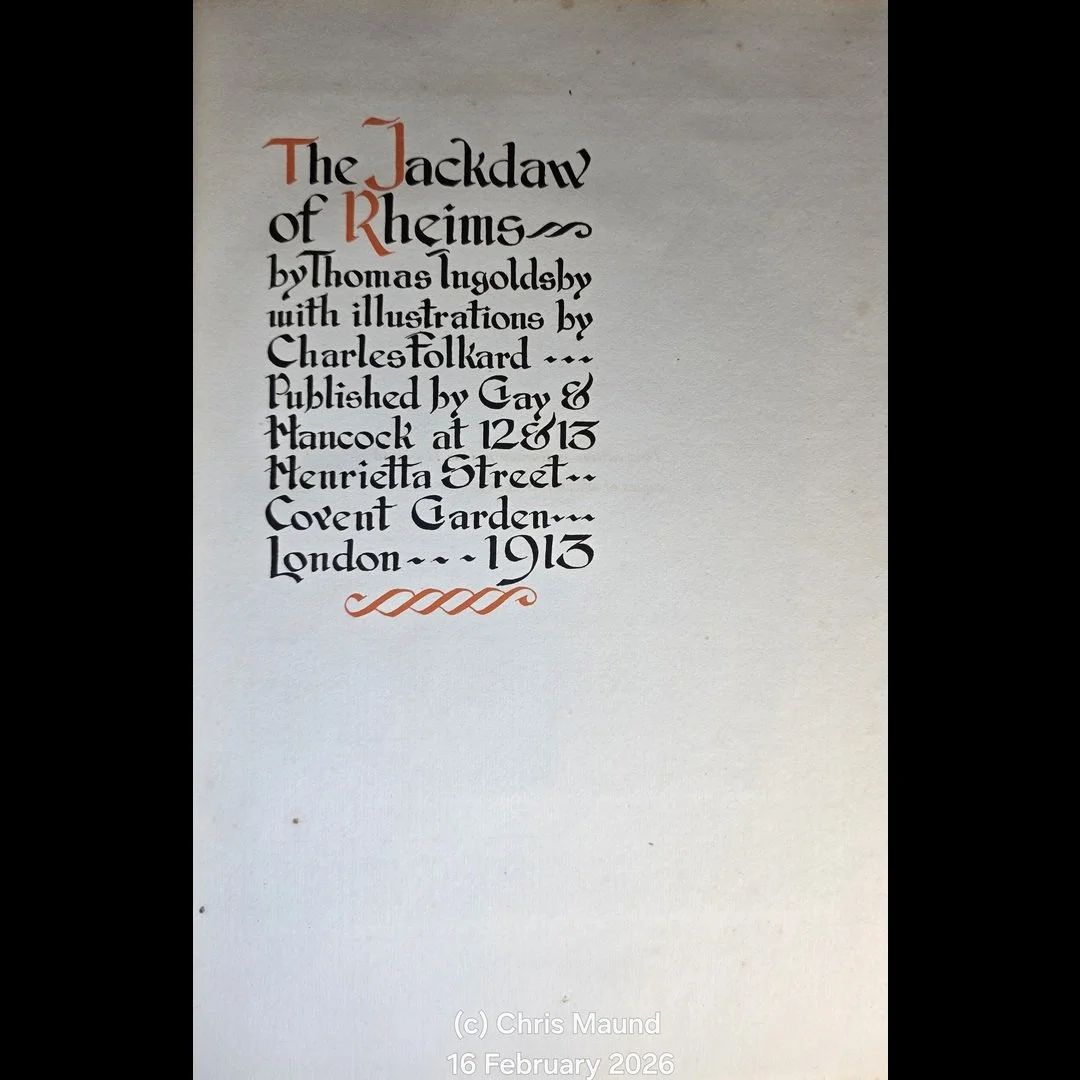 The Jackdaw
of Rheims
by Thomas Ingoldsby
with illustrations by
Charles Folkard ---
Published by Gay &
Hancock at 12 & 13
Henrietta Street--
Covent Garden---
London---1913
(c) Chris Maund
16 February 2026